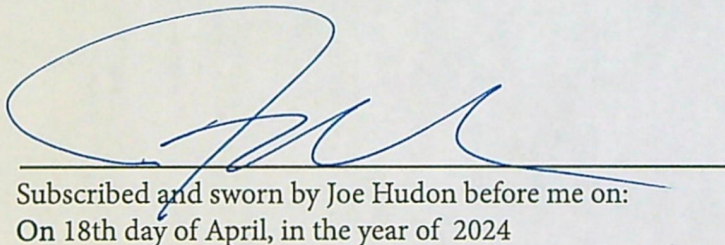 Subscribed and sworn by Joe Hudon before me on:
On 18th day of April, in the year of 2024